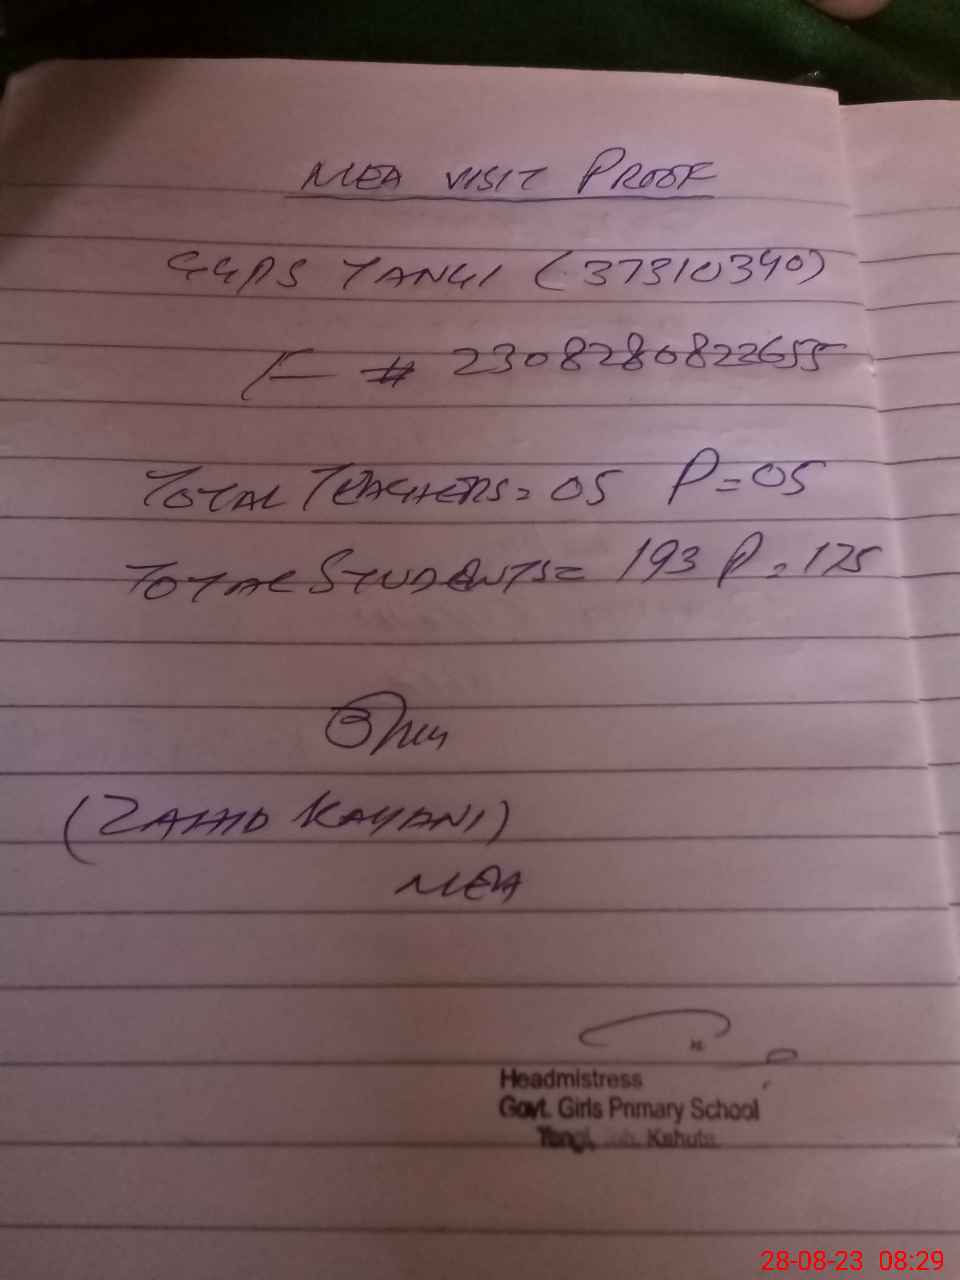 MEA VISIT PROOF
GGPS TANGI (37310390)
F - # 2308280822655
TOTAL TEACHERS = 05 P = 05
TOTAL STUDENTS = 193 P = 175
(ZAHID KAYANI)
MEA
Headmistress
Govt. Girls Primary School
Tangi, Teh. Kahuta.
28-08-23 08:29